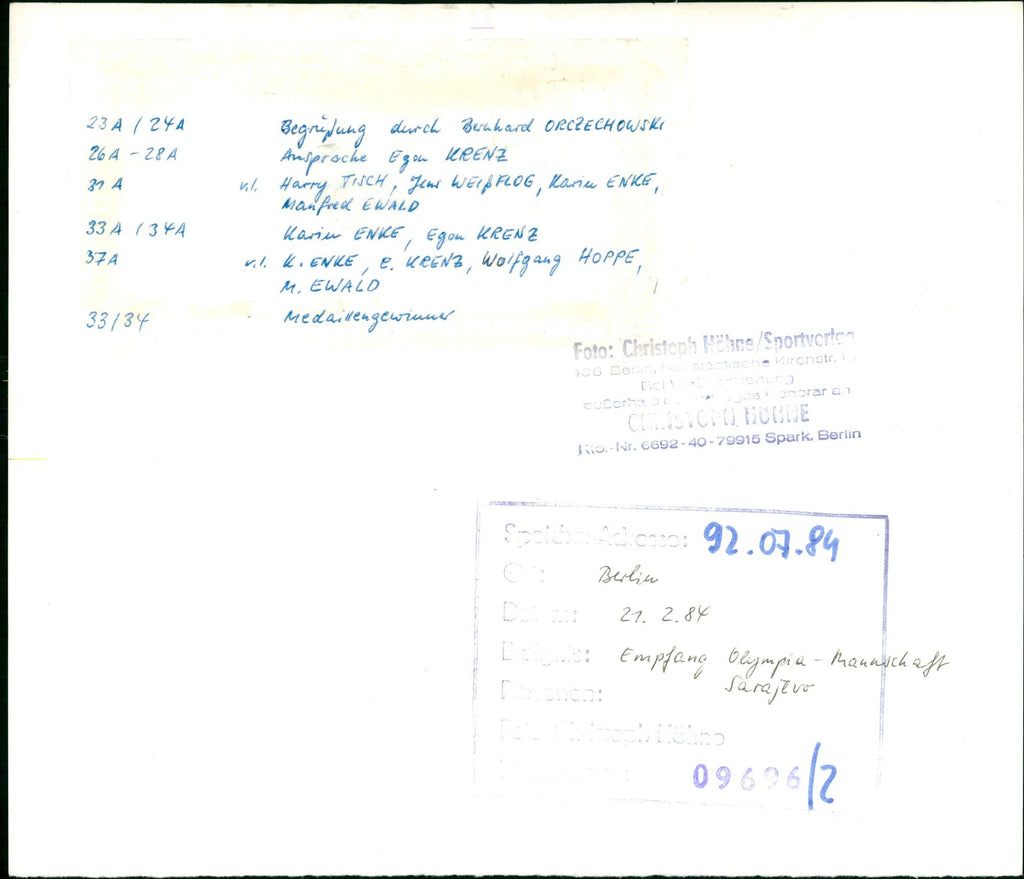 23A / 24A Begrüßung durch Bernhard ORCZECHOWSKI
26A - 28A Ansprache Egon KRENZ
31 A v.l. Harry TISCH, Jens WEIßFLOG, Karin ENKE,
Manfred EWALD
33A / 34A Karin ENKE, Egon KRENZ
37A v.l. K. ENKE, E. KRENZ, Wolfgang HOPPE,
M. EWALD
33/34 Medaillengewinner
Foto: Christoph Höhne/Sportverlag
Berlin, Neustädtische Kirchstr.
Bei
Honorar an
CHRISTOPH HÖHNE
Kto.-Nr. 6692-40-79915 Spark. Berlin
Speicher-Adresse: 92.07.84
Ort: Berlin
Datum: 21. 2. 84
Ereignis: Empfang Olympia-Mannschaft
Sarajevo
Personen:
Foto: Christoph Höhne
09696/2